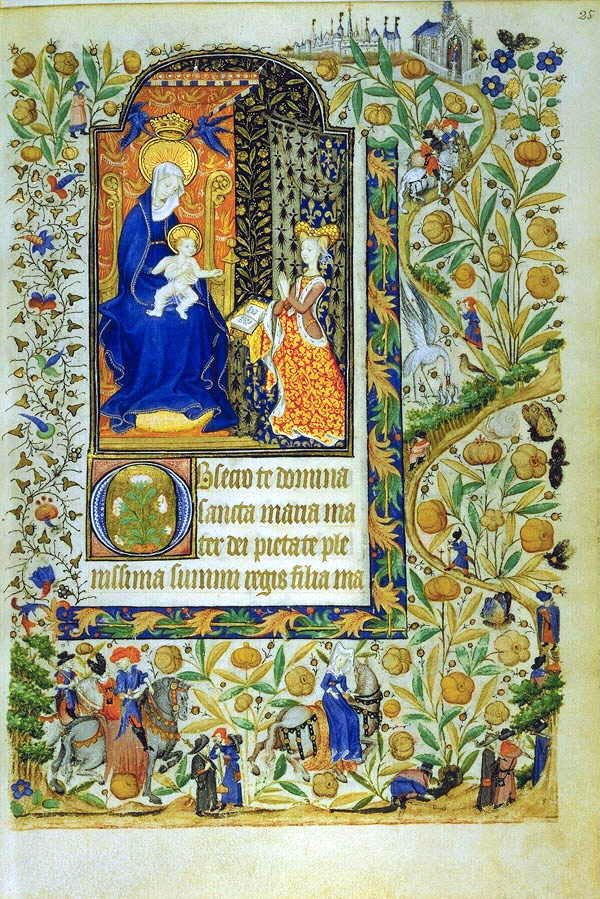 25
Obsecro te domina
sancta maria ma
ter dei pietate ple
nissima summi regis filia ma